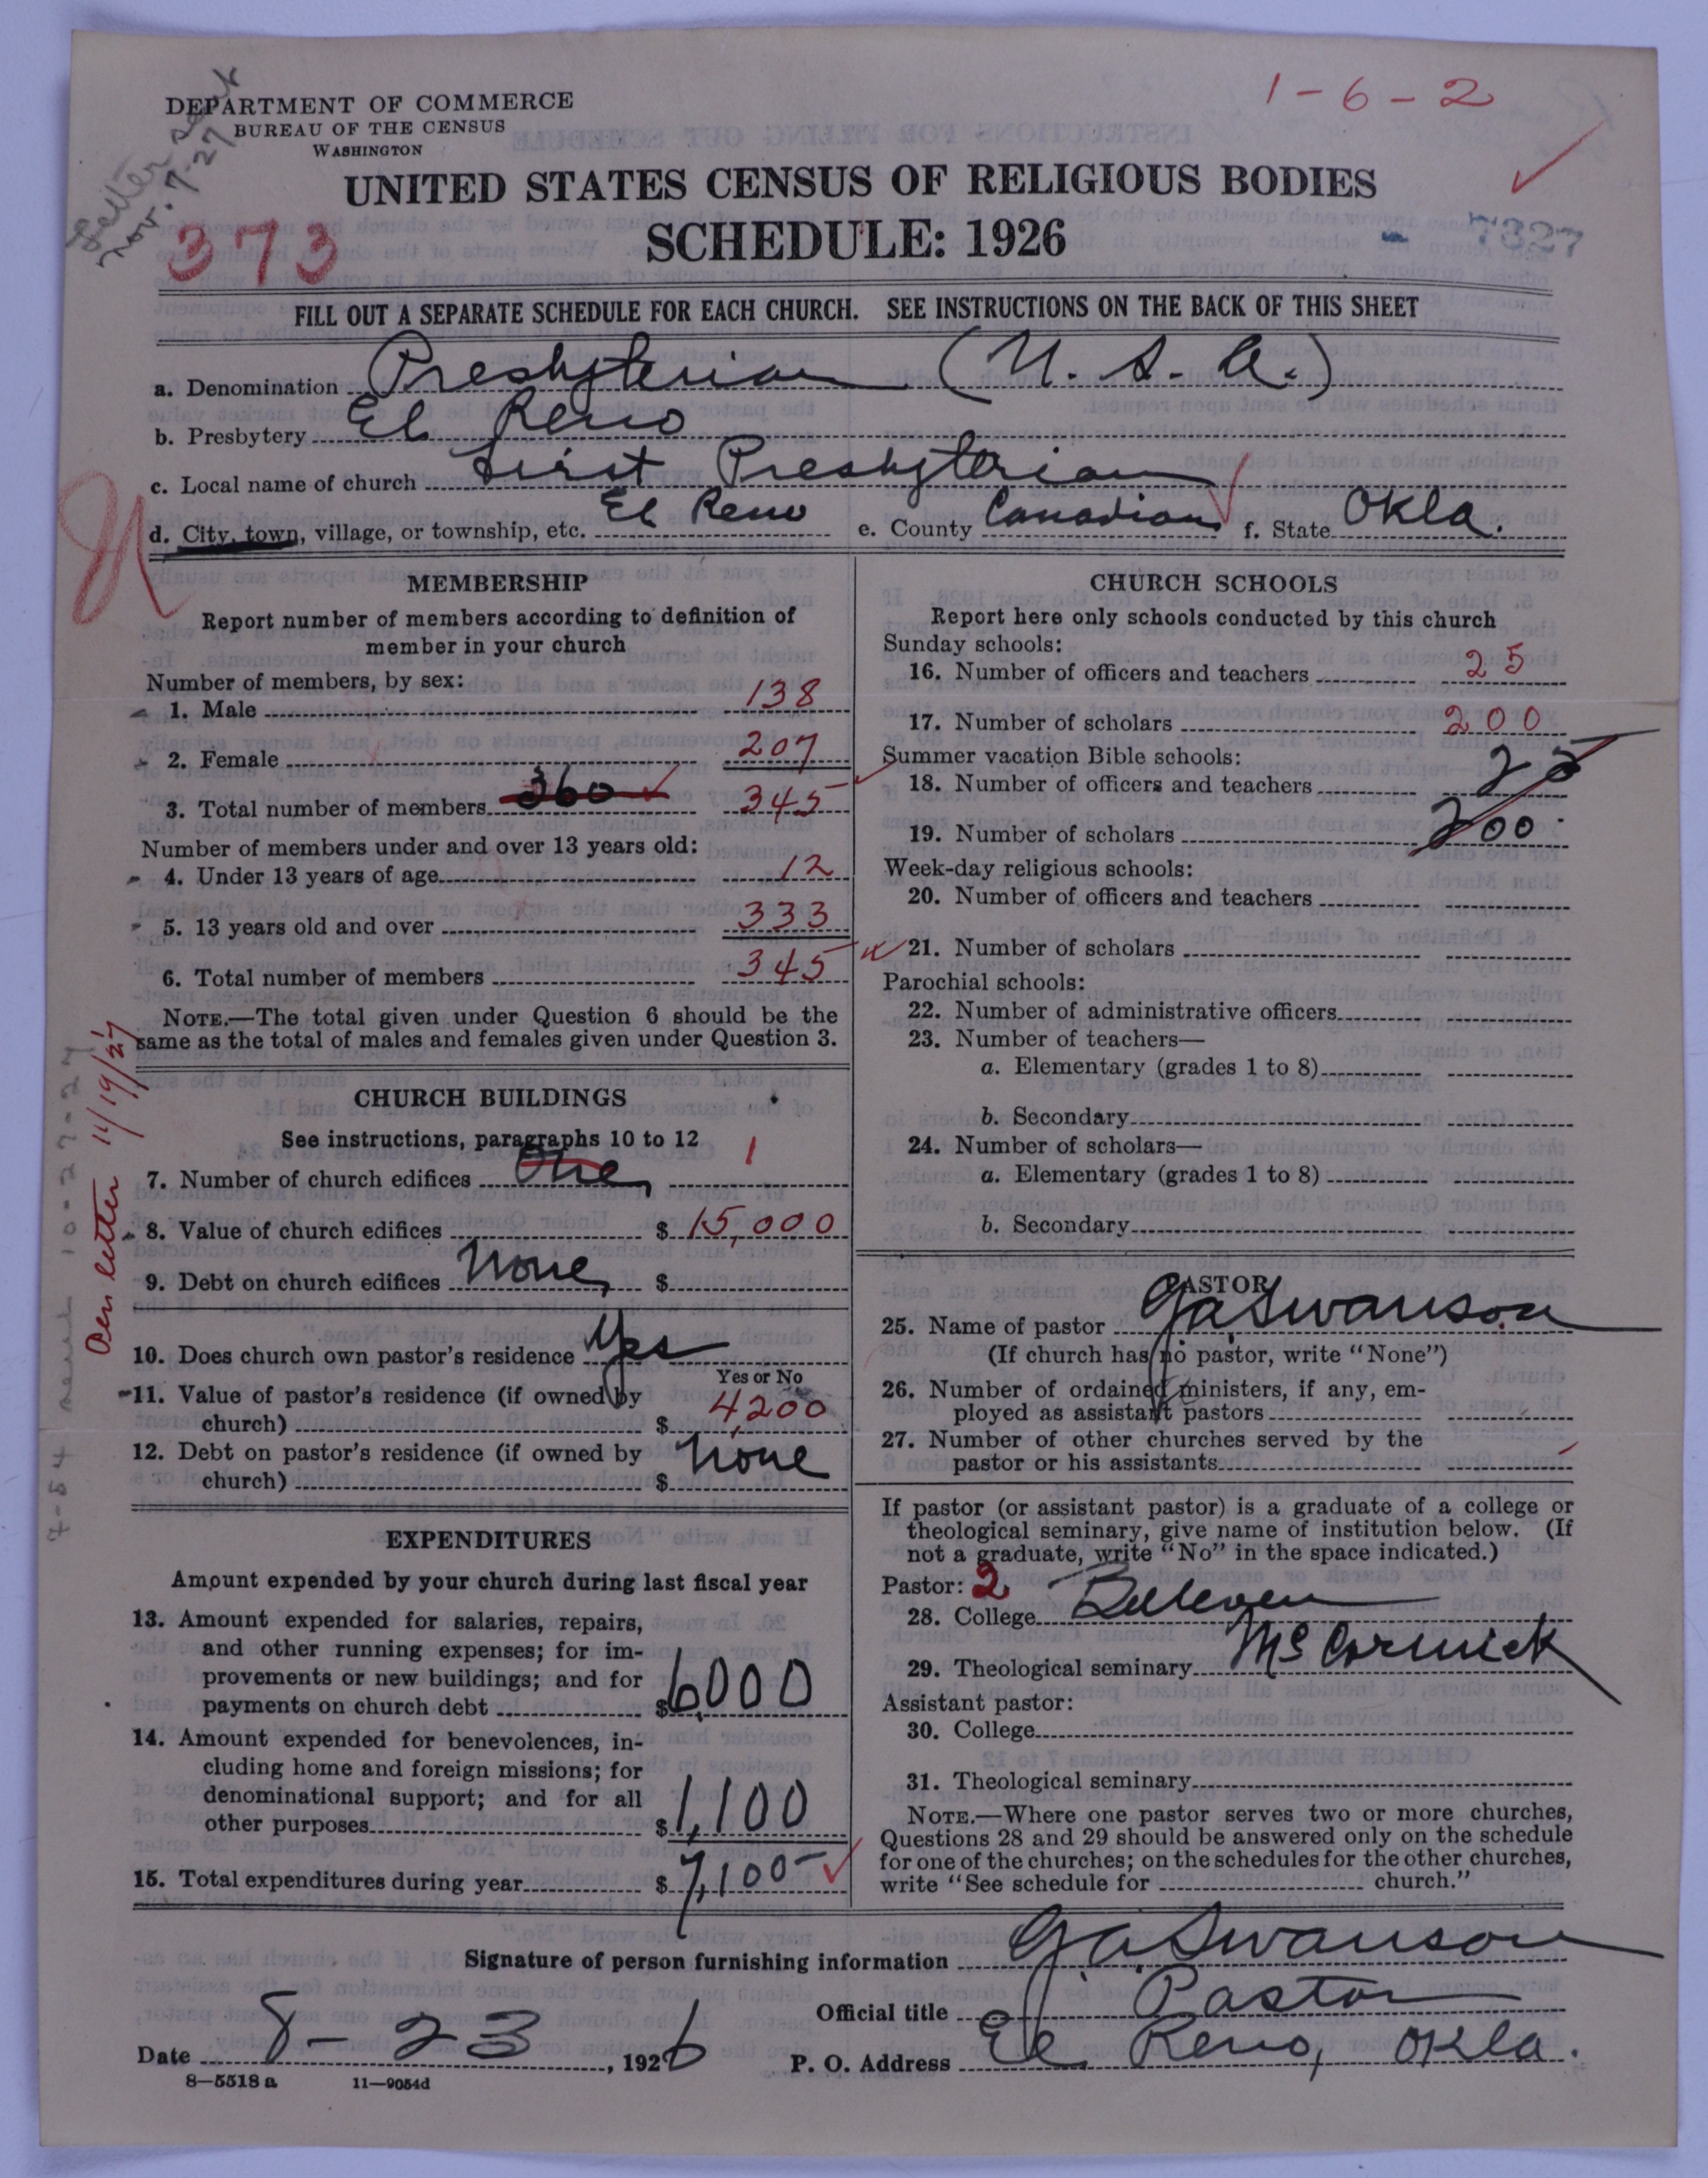 1-6-2
Letter sent
Nov. 7-27
DEPARTMENT OF COMMERCE
BUREAU OF THE CENSUS
WASHINGTON
UNITED STATES CENSUS OF RELIGIOUS BODIES
SCHEDULE: 1926
373
7327
FILL OUT A SEPARATE SCHEDULE FOR EACH CHURCH. SEE INSTRUCTIONS ON THE BACK OF THIS SHEET
a. Denomination Presbyterian (U. S. A.)
b. Presbytery El Reno
c. Local name of church First Presbyterian
d. City, town, village, or township, etc. El Reno e. County Canadian f. State Okla.
MEMBERSHIP
Report number of members according to definition of
member in your church
Number of members, by sex:
1. Male 138
2. Female 207
3. Total number of members 360 345
Number of members under and over 13 years old:
4. Under 13 years of age 12
5. 13 years old and over 333
6. Total number of members 345
NOTE.—The total given under Question 6 should be the
same as the total of males and females given under Question 3.
CHURCH BUILDINGS
See instructions, paragraphs 10 to 12
7. Number of church edifices One 1
8. Value of church edifices $ 15,000
9. Debt on church edifices None $
10. Does church own pastor's residence Yes
Yes or No
11. Value of pastor's residence (if owned by
church) $ 4,200
12. Debt on pastor's residence (if owned by
church) $ None
EXPENDITURES
Amount expended by your church during last fiscal year
13. Amount expended for salaries, repairs,
and other running expenses; for im-
provements or new buildings; and for
payments on church debt $6,000
14. Amount expended for benevolences, in-
cluding home and foreign missions; for
denominational support; and for all
other purposes $1,100
15. Total expenditures during year $ 7,100
Pen letter 11/19/27
10-27-27
CHURCH SCHOOLS
Report here only schools conducted by this church
Sunday schools:
16. Number of officers and teachers 25
17. Number of scholars 200
Summer vacation Bible schools:
18. Number of officers and teachers 25
19. Number of scholars 200
Week-day religious schools:
20. Number of officers and teachers
21. Number of scholars
Parochial schools:
22. Number of administrative officers
23. Number of teachers—
a. Elementary (grades 1 to 8)
b. Secondary
24. Number of scholars—
a. Elementary (grades 1 to 8)
b. Secondary
PASTOR
25. Name of pastor G. A. Swanson
(If church has no pastor, write "None")
26. Number of ordained ministers, if any, em-
ployed as assistant pastors
27. Number of other churches served by the
pastor or his assistants
If pastor (or assistant pastor) is a graduate of a college or
theological seminary, give name of institution below. (If
not a graduate, write "No" in the space indicated.)
Pastor: 2
28. College
29. Theological seminary McCormick
Assistant pastor:
30. College
31. Theological seminary
NOTE.—Where one pastor serves two or more churches,
Questions 28 and 29 should be answered only on the schedule
for one of the churches; on the schedules for the other churches,
write "See schedule for church."
Signature of person furnishing information G. A. Swanson
Official title Pastor
Date 8-23, 1926 P. O. Address El Reno, Okla.
8—5518 a 11—9054d